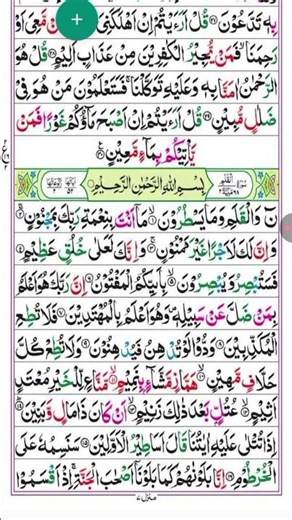 بِهٖ تَدَّعُوْنَ ۝ قُلْ اَرَءَيْتُمْ اِنْ اَهْلَكَنِيَ وَمَنْ مَّعِيَ اَوْ
رَحِمَنَا ۙ فَمَنْ يُّجِيْرُ الْكٰفِرِيْنَ مِنْ عَذَابٍ اَلِيْمٍ ۝ قُلْ هُوَ
الرَّحْمٰنُ اٰمَنَّا بِهٖ وَعَلَيْهِ تَوَكَّلْنَا ۚ فَسَتَعْلَمُوْنَ مَنْ هُوَ فِيْ
ضَلٰلٍ مُّبِيْنٍ ۝ قُلْ اَرَءَيْتُمْ اِنْ اَصْبَحَ مَآؤُكُمْ غَوْرًا فَمَنْ
يَّاْتِيْكُمْ بِمَآءٍ مَّعِيْنٍ ۝
بِسْمِ اللّٰهِ الرَّحْمٰنِ الرَّحِيْمِ
نٓ وَالْقَلَمِ وَمَا يَسْطُرُوْنَ ۝ مَآ اَنْتَ بِنِعْمَةِ رَبِّكَ بِمَجْنُوْنٍ ۝
وَاِنَّ لَكَ لَاَجْرًا غَيْرَ مَمْنُوْنٍ ۝ وَاِنَّكَ لَعَلٰى خُلُقٍ عَظِيْمٍ ۝
فَسَتُبْصِرُ وَيُبْصِرُوْنَ ۝ بِاَيِّكُمُ الْمَفْتُوْنُ ۝ اِنَّ رَبَّكَ هُوَ اَعْلَمُ
بِمَنْ ضَلَّ عَنْ سَبِيْلِهٖ وَهُوَ اَعْلَمُ بِالْمُهْتَدِيْنَ ۝ فَلَا تُطِعِ
الْمُكَذِّبِيْنَ ۝ وَدُّوْا لَوْ تُدْهِنُ فَيُدْهِنُوْنَ ۝ وَلَا تُطِعْ كُلَّ
حَلَّافٍ مَّهِيْنٍ ۝ هَمَّازٍ مَّشَّآءٍۢ بِنَمِيْمٍ ۝ مَّنَّاعٍ لِّلْخَيْرِ مُعْتَدٍ
اَثِيْمٍ ۝ عُتُلٍّۢ بَعْدَ ذٰلِكَ زَنِيْمٍ ۝ اَنْ كَانَ ذَا مَالٍ وَّبَنِيْنَ ۝
اِذَا تُتْلٰى عَلَيْهِ اٰيٰتُنَا قَالَ اَسَاطِيْرُ الْاَوَّلِيْنَ ۝ سَنَسِمُهٗ عَلَى
الْخُرْطُوْمِ ۝ اِنَّا بَلَوْنٰهُمْ كَمَا بَلَوْنَآ اَصْحٰبَ الْجَنَّةِ ۚ اِذْ اَقْسَمُوْا